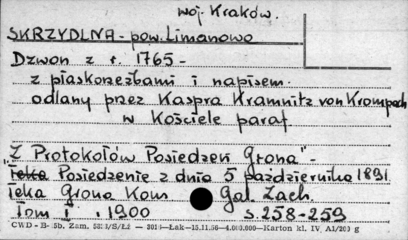 woj. Kraków.
SKRZYDLNA - pow. Limanowa
Dzwon z r. 1765 -
z płaskorzeźbami i napisem.
odlany przez Kaspra Kramnitz von Krompach
w Kościele paraf.
"Z Protokołów Posiedzeń Grona" -
Teka Posiedzenie z dnia 5 października 1891.
Teka Grona Kons Gal. Zach.
Tom I , 1900 s. 258-259
CWD - B- Zam. — Łak — 15.11.50 — 4.000.000 — Karton kl. IV, A1/200 g